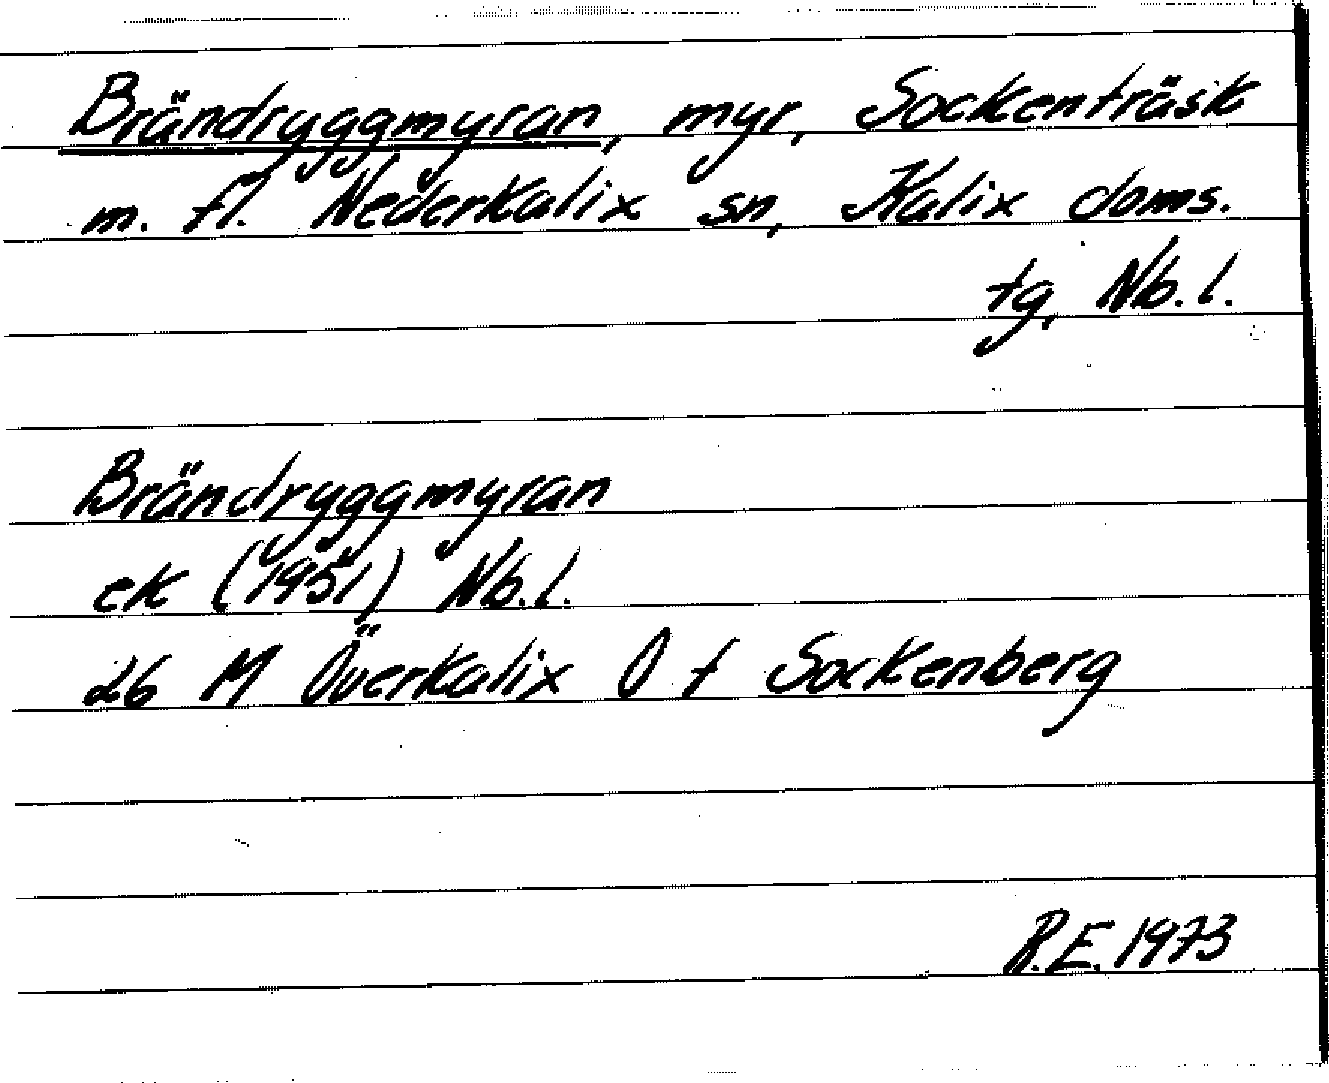 Brändryggmyran, myr, Sockenträsk
m. fl. Nederkalix sn, Kalix doms.
tg, Nb. l.
Brändryggmyran
ek (1951) Nb. l.
26 M Överkalix O t Sockenberg
R.E. 1973